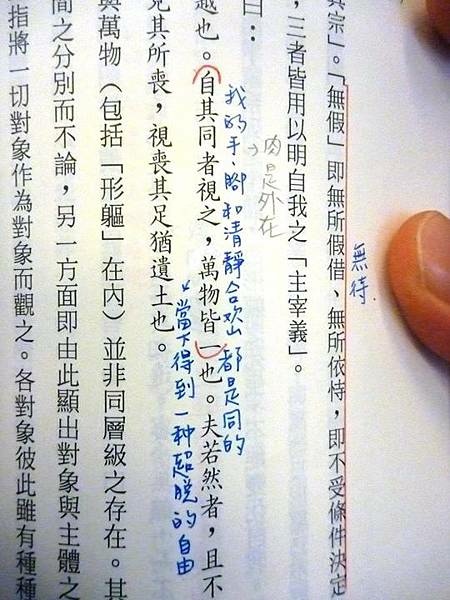 其宗」。「無假」即無所假借、無所依恃，即不受條件決定
無待.
，三者皆用以明自我之「主宰義」。
肉是外在
曰：
我的手、腳和清靜合欢山都是同的
越也。自其同者視之，萬物皆一也。夫若然者，且不
當下得到一种超脫的自由
見其所喪，視喪其足猶遺土也。
與萬物（包括「形軀」在內）並非同層級之存在。其
間之分別而不論，另一方面即由此顯出對象與主體之
指將一切對象作為對象而觀之。各對象彼此雖有種種